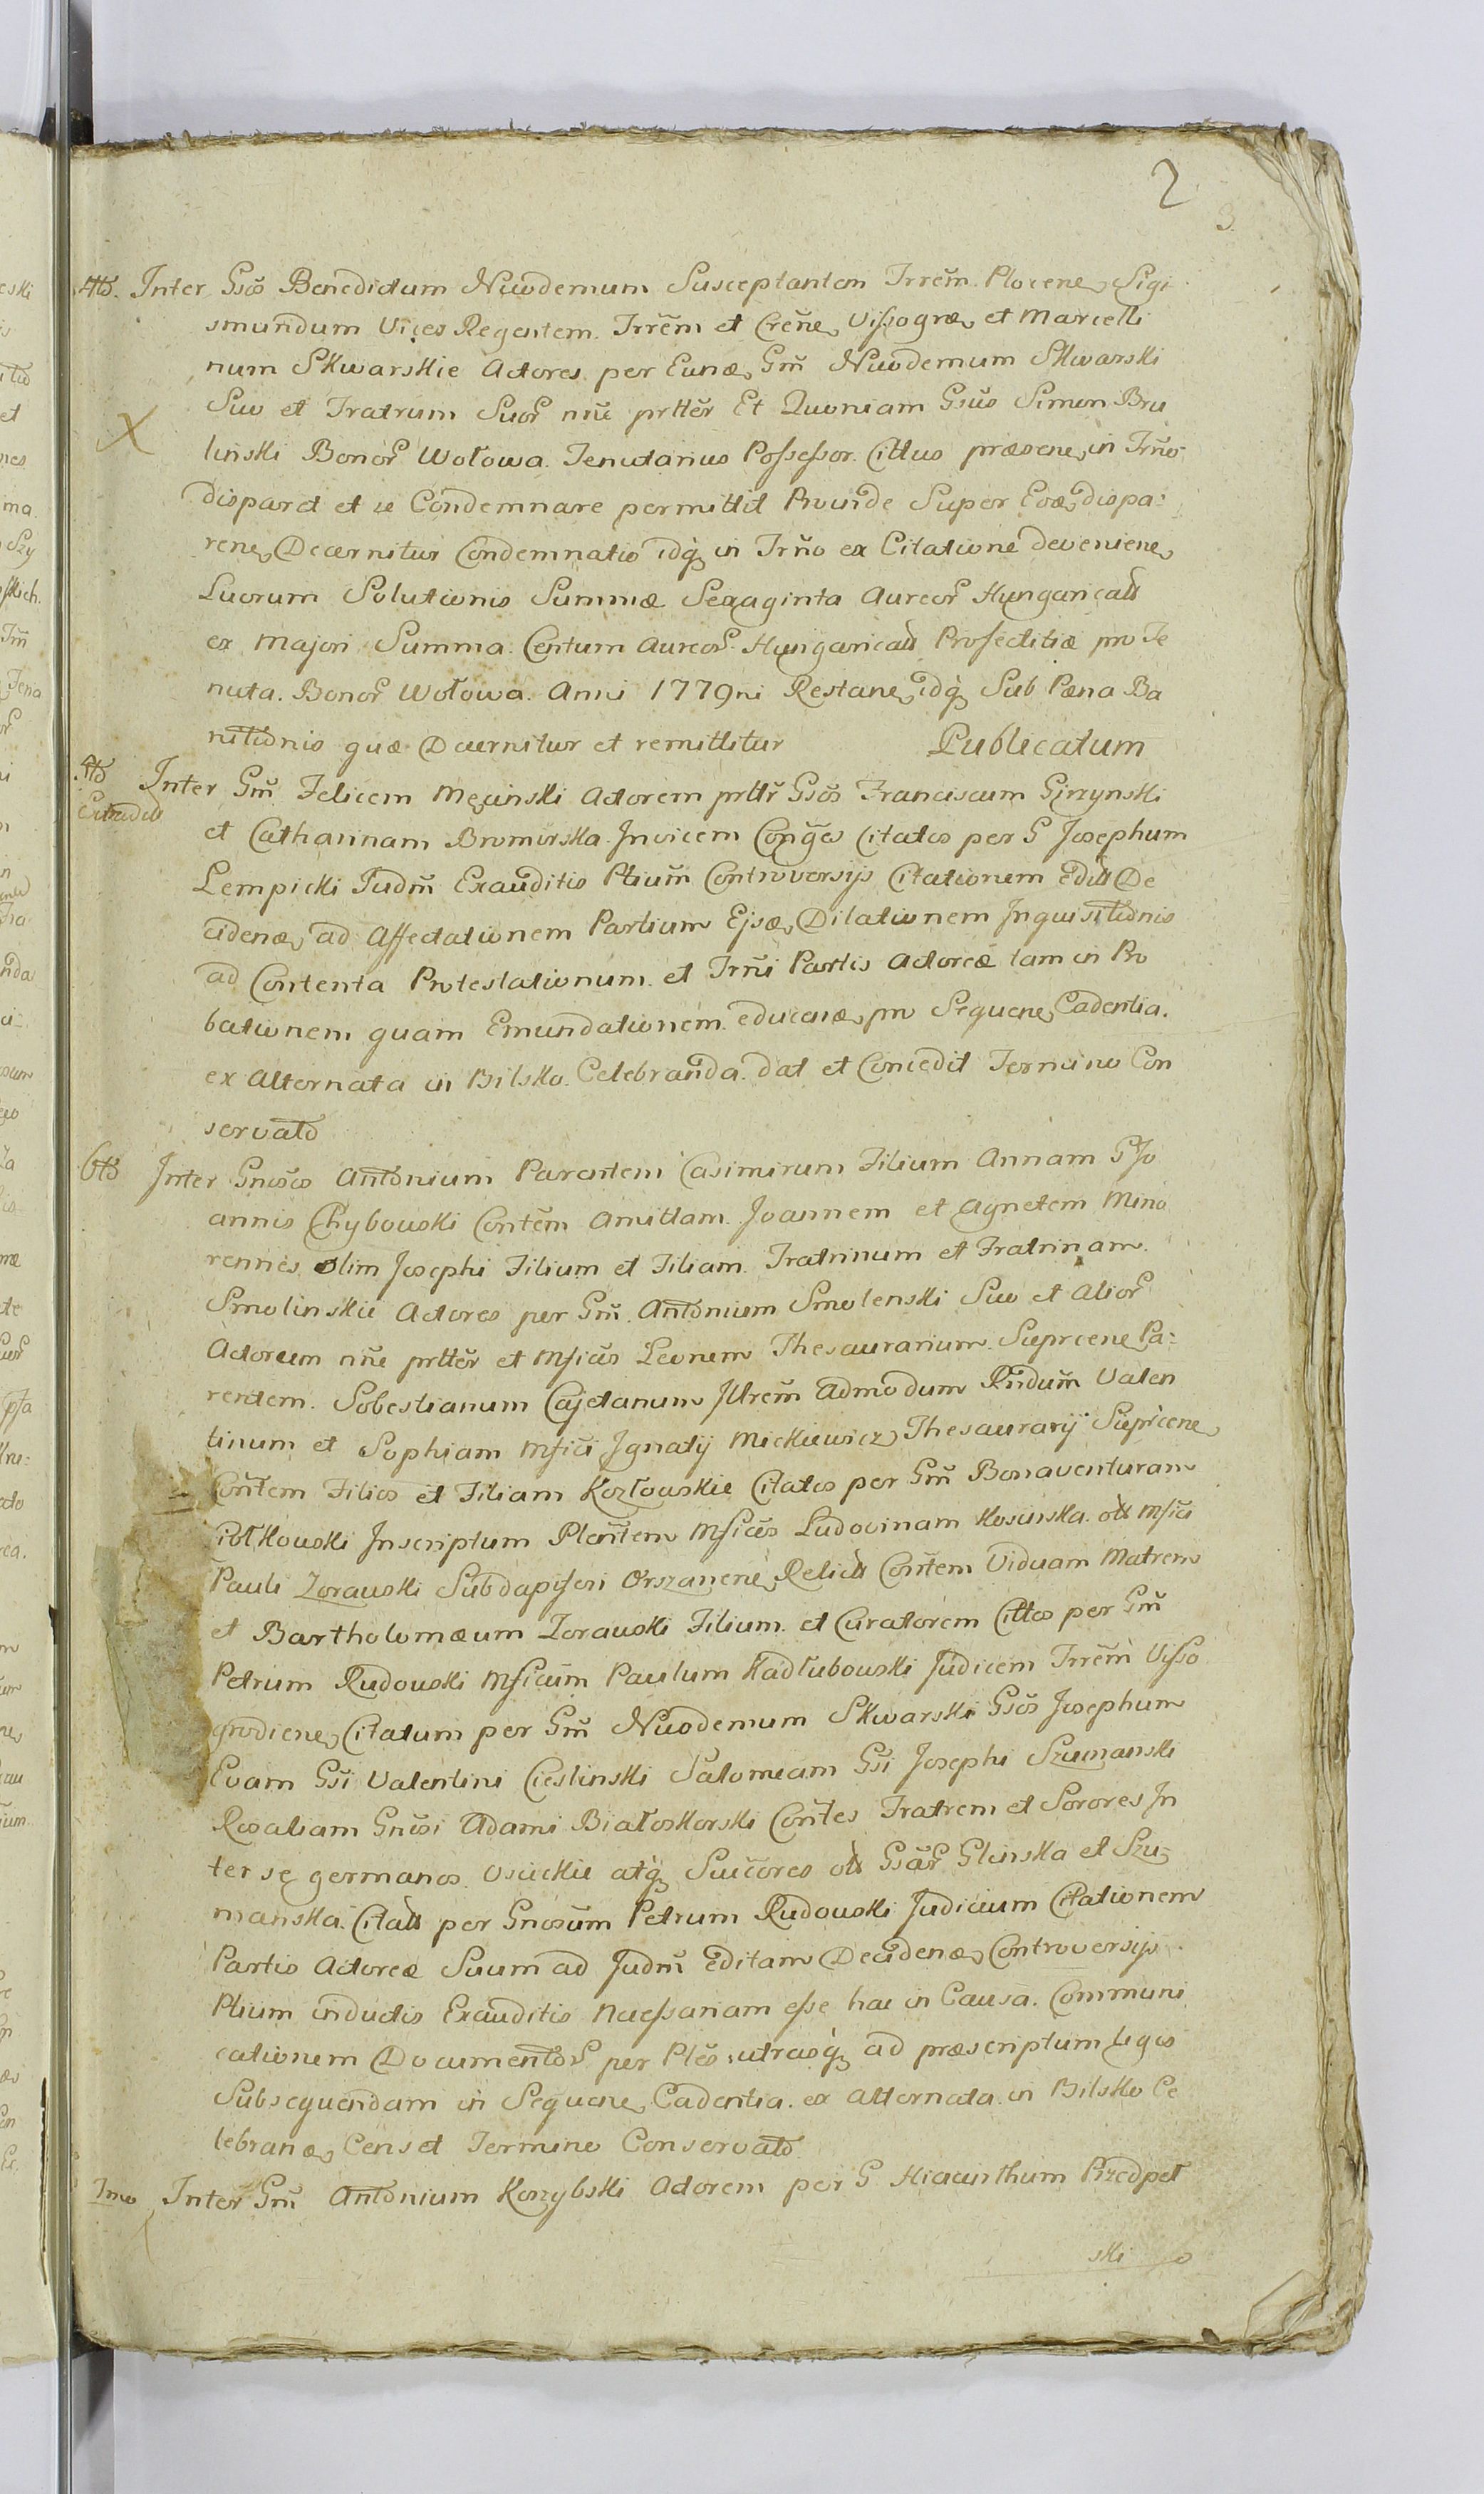 2
3
4to. Inter Gsos Benedictum Nicodemum Susceptantem Trrem Plocene Sigi
smundum Vices Regentem Trrem et Crene Vissogræ et Marcelli
num Skwarskie Actores per Eunæ Gm Nicodemum Skwarski
Suo et Fratrum Suor nne prtter Et Quoniam Gsus Simon Bru
X
linski Bonor Wołowa Tenutarius Possessor Cittus præsene in Trno
disparet et se Condemnare permittit Proinde Super Eoæ dispa:
rene Decernitur Condemnatio idq in Trno ex Citatione deveniene
Lucrum Solutionis Summæ Sexaginta Aureor Hungaricalt
ex Majori Summa Centum Aureor Hungarical Profectitiæ pro Te
nuta Bonor Wołowa Anni 1779ni Restane idq Sub Pæna Ba
nitionis quæ Decernitur et remittitur Publicatum
5to Inter Gm Felicem Męcinski Actorem prttr Gsos Franciscum Girzynski
Extradit
et Catharinam Bromirska Invicem Conges Citatos per G Josephum
Lempicki Judm Exauditis Ptium Controversijs Citationem Edit De
cidenæ ad Affectationem Partium Ejsæ Dilationem Inquisitionis
ad Contenta Protestationum et Trni Partis Actoreæ tam in Pro
bationem quam Emundationem educenæ pro Sequene Cadentia
ex Alternata in Bilsko Celebranda dat et Concedit Termino Con
servato
6to Inter Gnosos Antonium Parentem Casimirum Filium Annam G Jo
annis Chybowski Contem Amittam Joannem et Agnetem Mino
rennes olim Josephi Filium et Filiam Fratrinum et Fratrinam
Smolinskie Actores per Gm Antonium Smolenski Suo et Alior
Actoreum nne prtter et Mficos Leonem Thesaurarium Suprcene Pa:
rentem Sobestianum Cajetanum Illrem Admodum Rndum Valen
tinum et Sophiam Mfici Ignatij Mickiewicz Thesaurarij Suprcene
Contem Filios et Filiam Kozłowskie Citatos per Gm Bonaventuram
Piołkowski Inscriptum Plentem Mficos Ludovinam Kosinska olt Mfici
Pauli Zorawski Subdapiferi Orszanene Relict Contem Viduam Matrem
et Bartholomæum Zorawski Filium et Curatorem Cittos per Gm
Petrum Rudowski Mficum Paulum Kadłubowski Judicem Trrem Visso
grodiene Citatum per Gm Nicodemum Skwarski Gsos Josephum
Evam Gsi Valentini Cieslinski Salomeam Gsi Josephi Szumanski
Rosaliam Gnosi Adami Białoskorski Contes Fratrem et Sorores In
ter se germanos Osieckie atq Succores olt Gsar Glinska et Szu
manska Citalt per Gnosum Petrum Rudowski Judicium Citationem
Partis Actoreæ Suum ad Judm Editam Decidenæ Controversijs
Ptium inductis Exauditis Necessariam esse hac in Causa Communi
cationem Documentor per Ptes utrasq ad præscriptum legis
Subsequendam in Sequene Cadentia ex Alternata in Bilsko Ce
lebranæ Censet Termino Conservato
7mo Inter Gm Antonium Korzybski Actorem per G Hiacinthum Przedpeł
ski